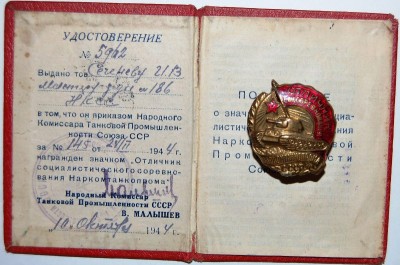 УДОСТОВЕРЕНИЕ
№ 5942
Выдано тов. Сеченеву И.В
№ 186
в том, что он приказом Народного
Комиссара Танковой Промышлен-
ности Союза ССР
за № 145 от 194 4 г.
награжден значком "Отличник
социалистического соревно-
вания Наркомтанкопрома"
Народный Комиссар
Танковой Промышленности СССР
В. МАЛЫШЕВ
10 Октября 194 4 г.
ПО
о значке
листическ
Нарком
Промы
Со